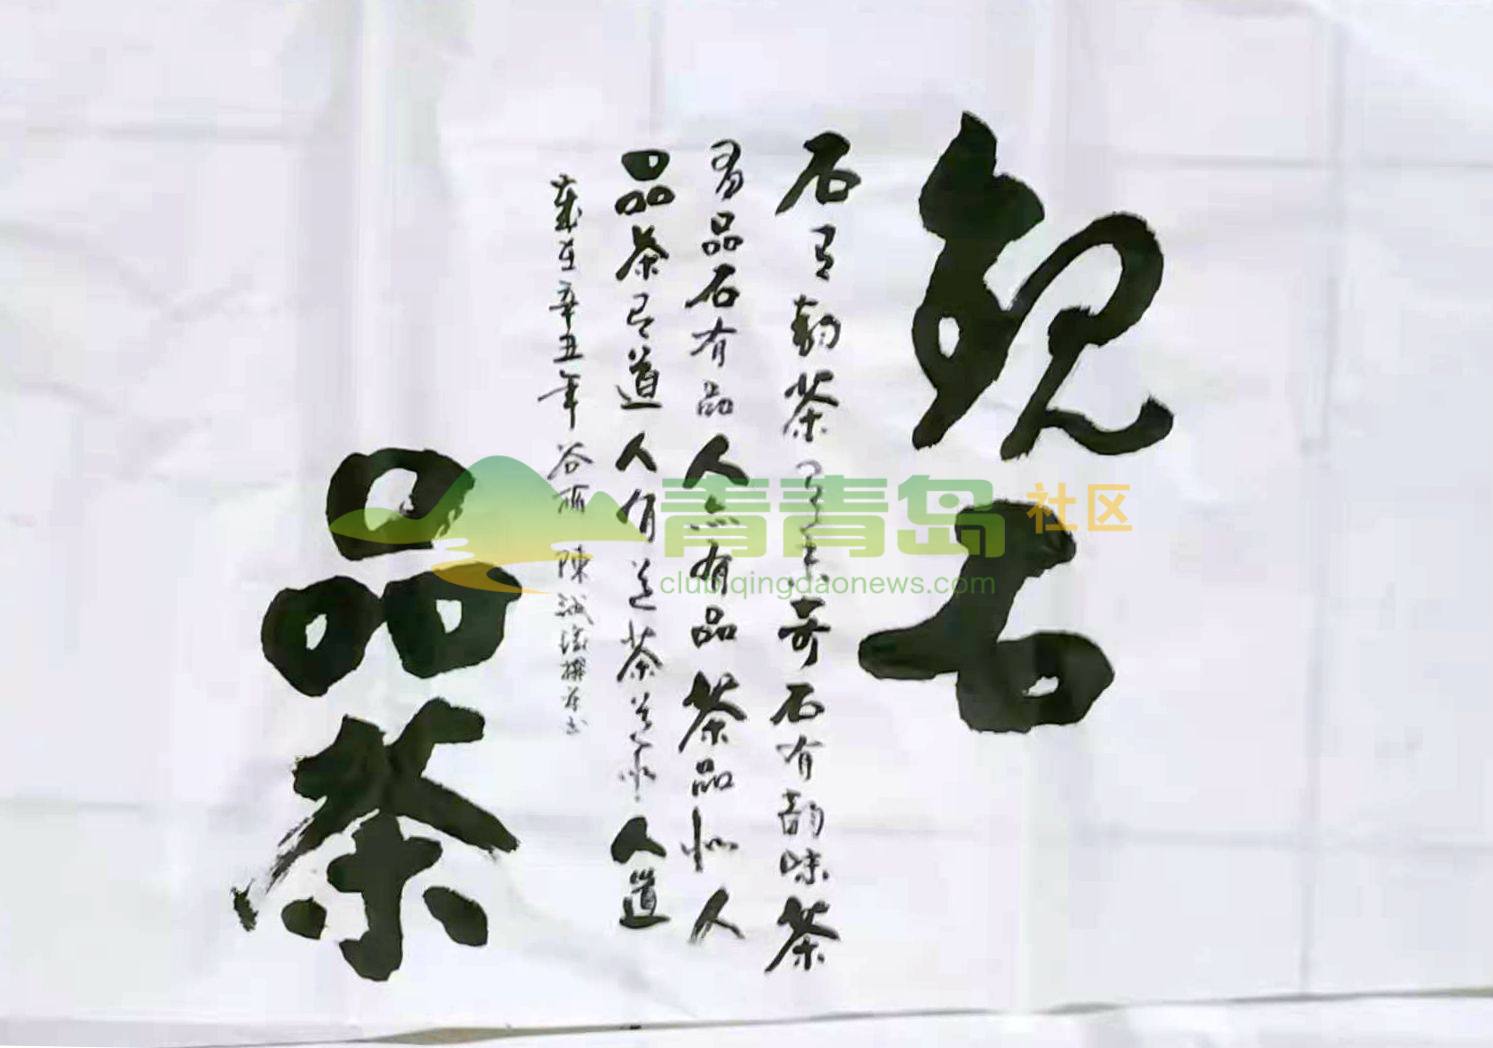 观石
石有韵茶奇石有韵味茶
有品石有品人亦有品茶品似人
品茶有道人有道茶道亦人道
歲在辛丑年谷雨 陳誠撰并书
品茶
青青岛社区
club.qingdaonews.com